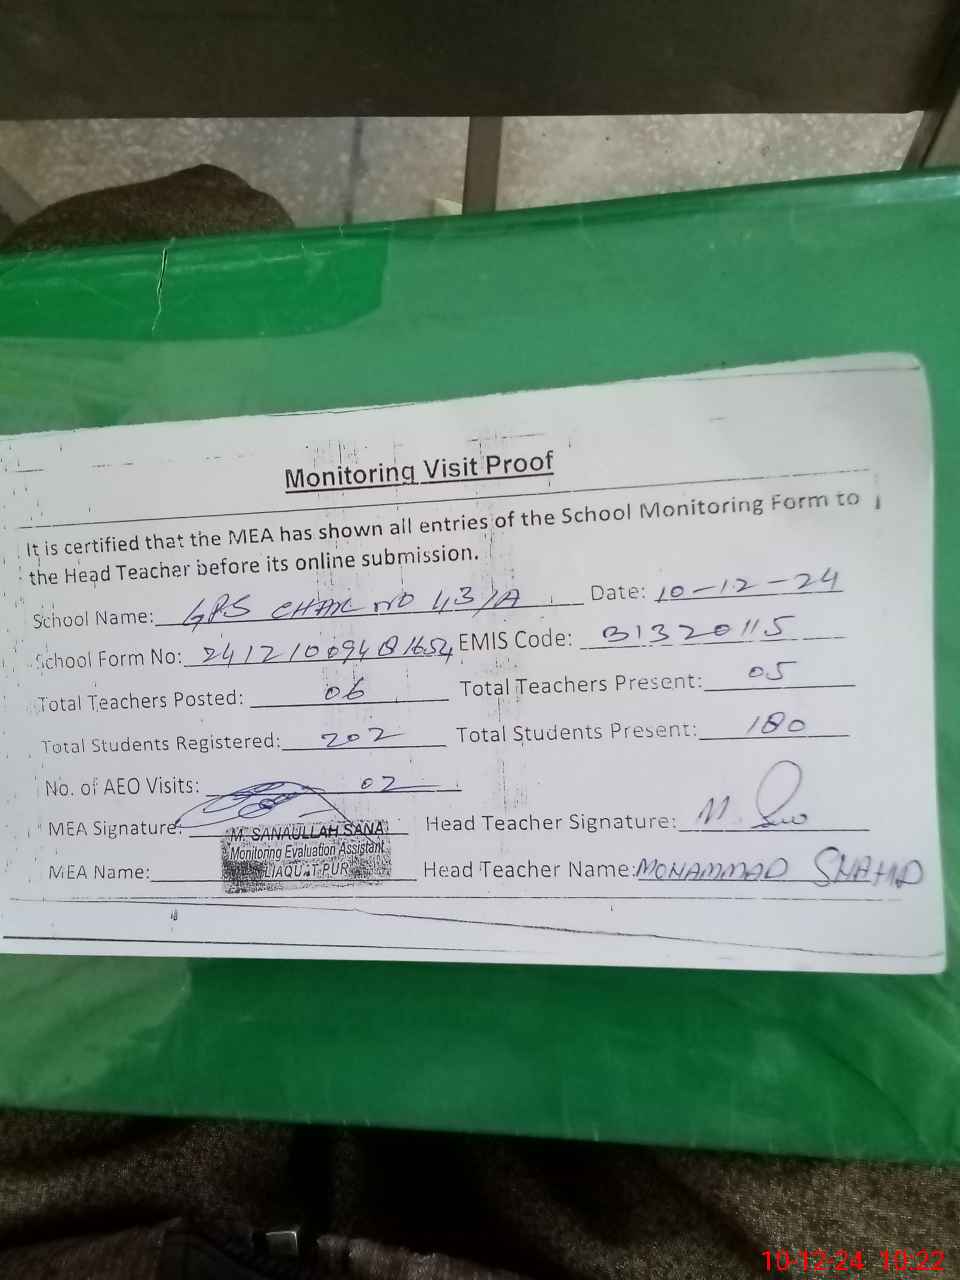 Monitoring Visit Proof
It is certified that the MEA has shown all entries of the School Monitoring Form to
the Head Teacher before its online submission.
School Name: GPS CHAK NO 43/A Date: 10-12-24
School Form No: EMIS Code: 31320115
Total Teachers Posted: 06 Total Teachers Present: 05
Total Students Registered: 202 Total Students Present: 180
No. of AEO Visits: 02
MEA Signature: Head Teacher Signature:
M. SANAULLAH SANA
Monitoring Evaluation Assistant
LIAQUAT PUR
MEA Name: Head Teacher Name: MOHAMMAD SHAHID
10-12-24 10:22